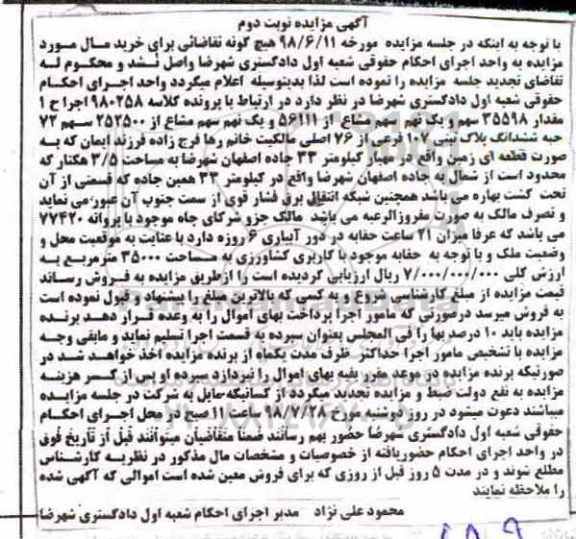 آگهی مزایده نوبت دوم
با توجه به اینکه در جلسه مزایده مورخه ۹۸/۶/۱۱ هیچ گونه تقاضائی برای خرید مال مورد
مزایده به واحد اجرای احکام حقوقی شعبه اول دادگستری شهرضا واصل نشد و محکوم له
تقاضای تجدید جلسه مزایده را نموده است لذا بدینوسیله اعلام میگردد واحد اجرای احکام
حقوقی شعبه اول دادگستری شهرضا در نظر دارد در ارتباط با پرونده کلاسه ۹۸۰۲۵۸ اجرا ح ۱
مقدار ۳۵۵۹۸ سهم و یک نهم سهم مشاع از ۵۶۱۱۱ و یک نهم سهم مشاع از ۲۵۲۵۰۰ سهم ۷۲
حبه ششدانگ پلاک ثبتی ۱۰۷ فرعی از ۷۶ اصلی مالکیت خانم رها فرج زاده فرزند ایمان که به
صورت قطعه ای زمین واقع در مهیار کیلومتر ۳۳ جاده اصفهان شهرضا به مساحت ۳/۵ هکتار که
محدود است از شمال به جاده اصفهان شهرضا واقع در کیلومتر ۳۳ همین جاده که قسمتی از آن
تحت کشت بهاره می باشد همچنین شبکه انتقال برق فشار قوی از سمت جنوب آن عبور می نماید
و تصرف مالک به صورت مفروزالرعیه می باشد مالک جزو شرکای چاه موجود با پروانه ۷۷۴۲۰
می باشد که عرفا میزان ۲۱ ساعت حقابه در دور آبیاری ۶ روزه دارد با عنایت به موقعیت محل و
وضعیت ملک و با توجه به حقابه موجود با کاربری کشاورزی به مساحت ۳۵۰۰۰ مترمربع به
ارزش کلی ۷/۰۰۰/۰۰۰/۰۰۰ ریال ارزیابی گردیده است را ازطریق مزایده به فروش رساند
قیمت مزایده از مبلغ کارشناسی شروع و به کسی که بالاترین مبلغ را پیشنهاد و قبول نموده است
به فروش میرسد درصورتی که مامور اجرا پرداخت بهای اموال را به وعده قرار دهد برنده
مزایده باید ۱۰ درصد بها را فی المجلس بعنوان سپرده به قسمت اجرا تسلیم نماید و مابقی وجه
مزایده با تشخیص مامور اجرا حداکثر ظرف مدت یکماه از برنده مزایده اخذ خواهد شد در
صورتیکه برنده مزایده در موعد مقرر بقیه بهای اموال را نپردازد سپرده او پس از کسر هزینه
مزایده به نفع دولت ضبط و مزایده تجدید میگردد از کسانیکه مایل به شرکت در جلسه مزایده
میباشند دعوت میشود در روز دوشنبه مورخ ۹۸/۷/۲۸ ساعت ۱۱ صبح در محل اجرای احکام
حقوقی شعبه اول دادگستری شهرضا حضور بهم رسانند ضمنا متقاضیان میتوانند قبل از تاریخ فوق
در واحد اجرای احکام حضوریافته از خصوصیات و مشخصات مال مذکور در نظریه کارشناس
مطلع شوند و در مدت ۵ روز قبل از روزی که برای فروش معین شده است اموالی که آگهی شده
را ملاحظه نمایند
محمود علی نژاد مدیر اجرای احکام شعبه اول دادگستری شهرضا